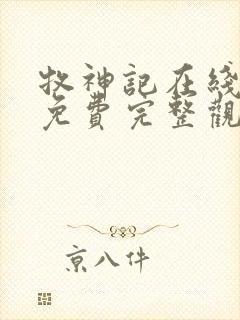 牧神記在綫
免費完整觀
京八件